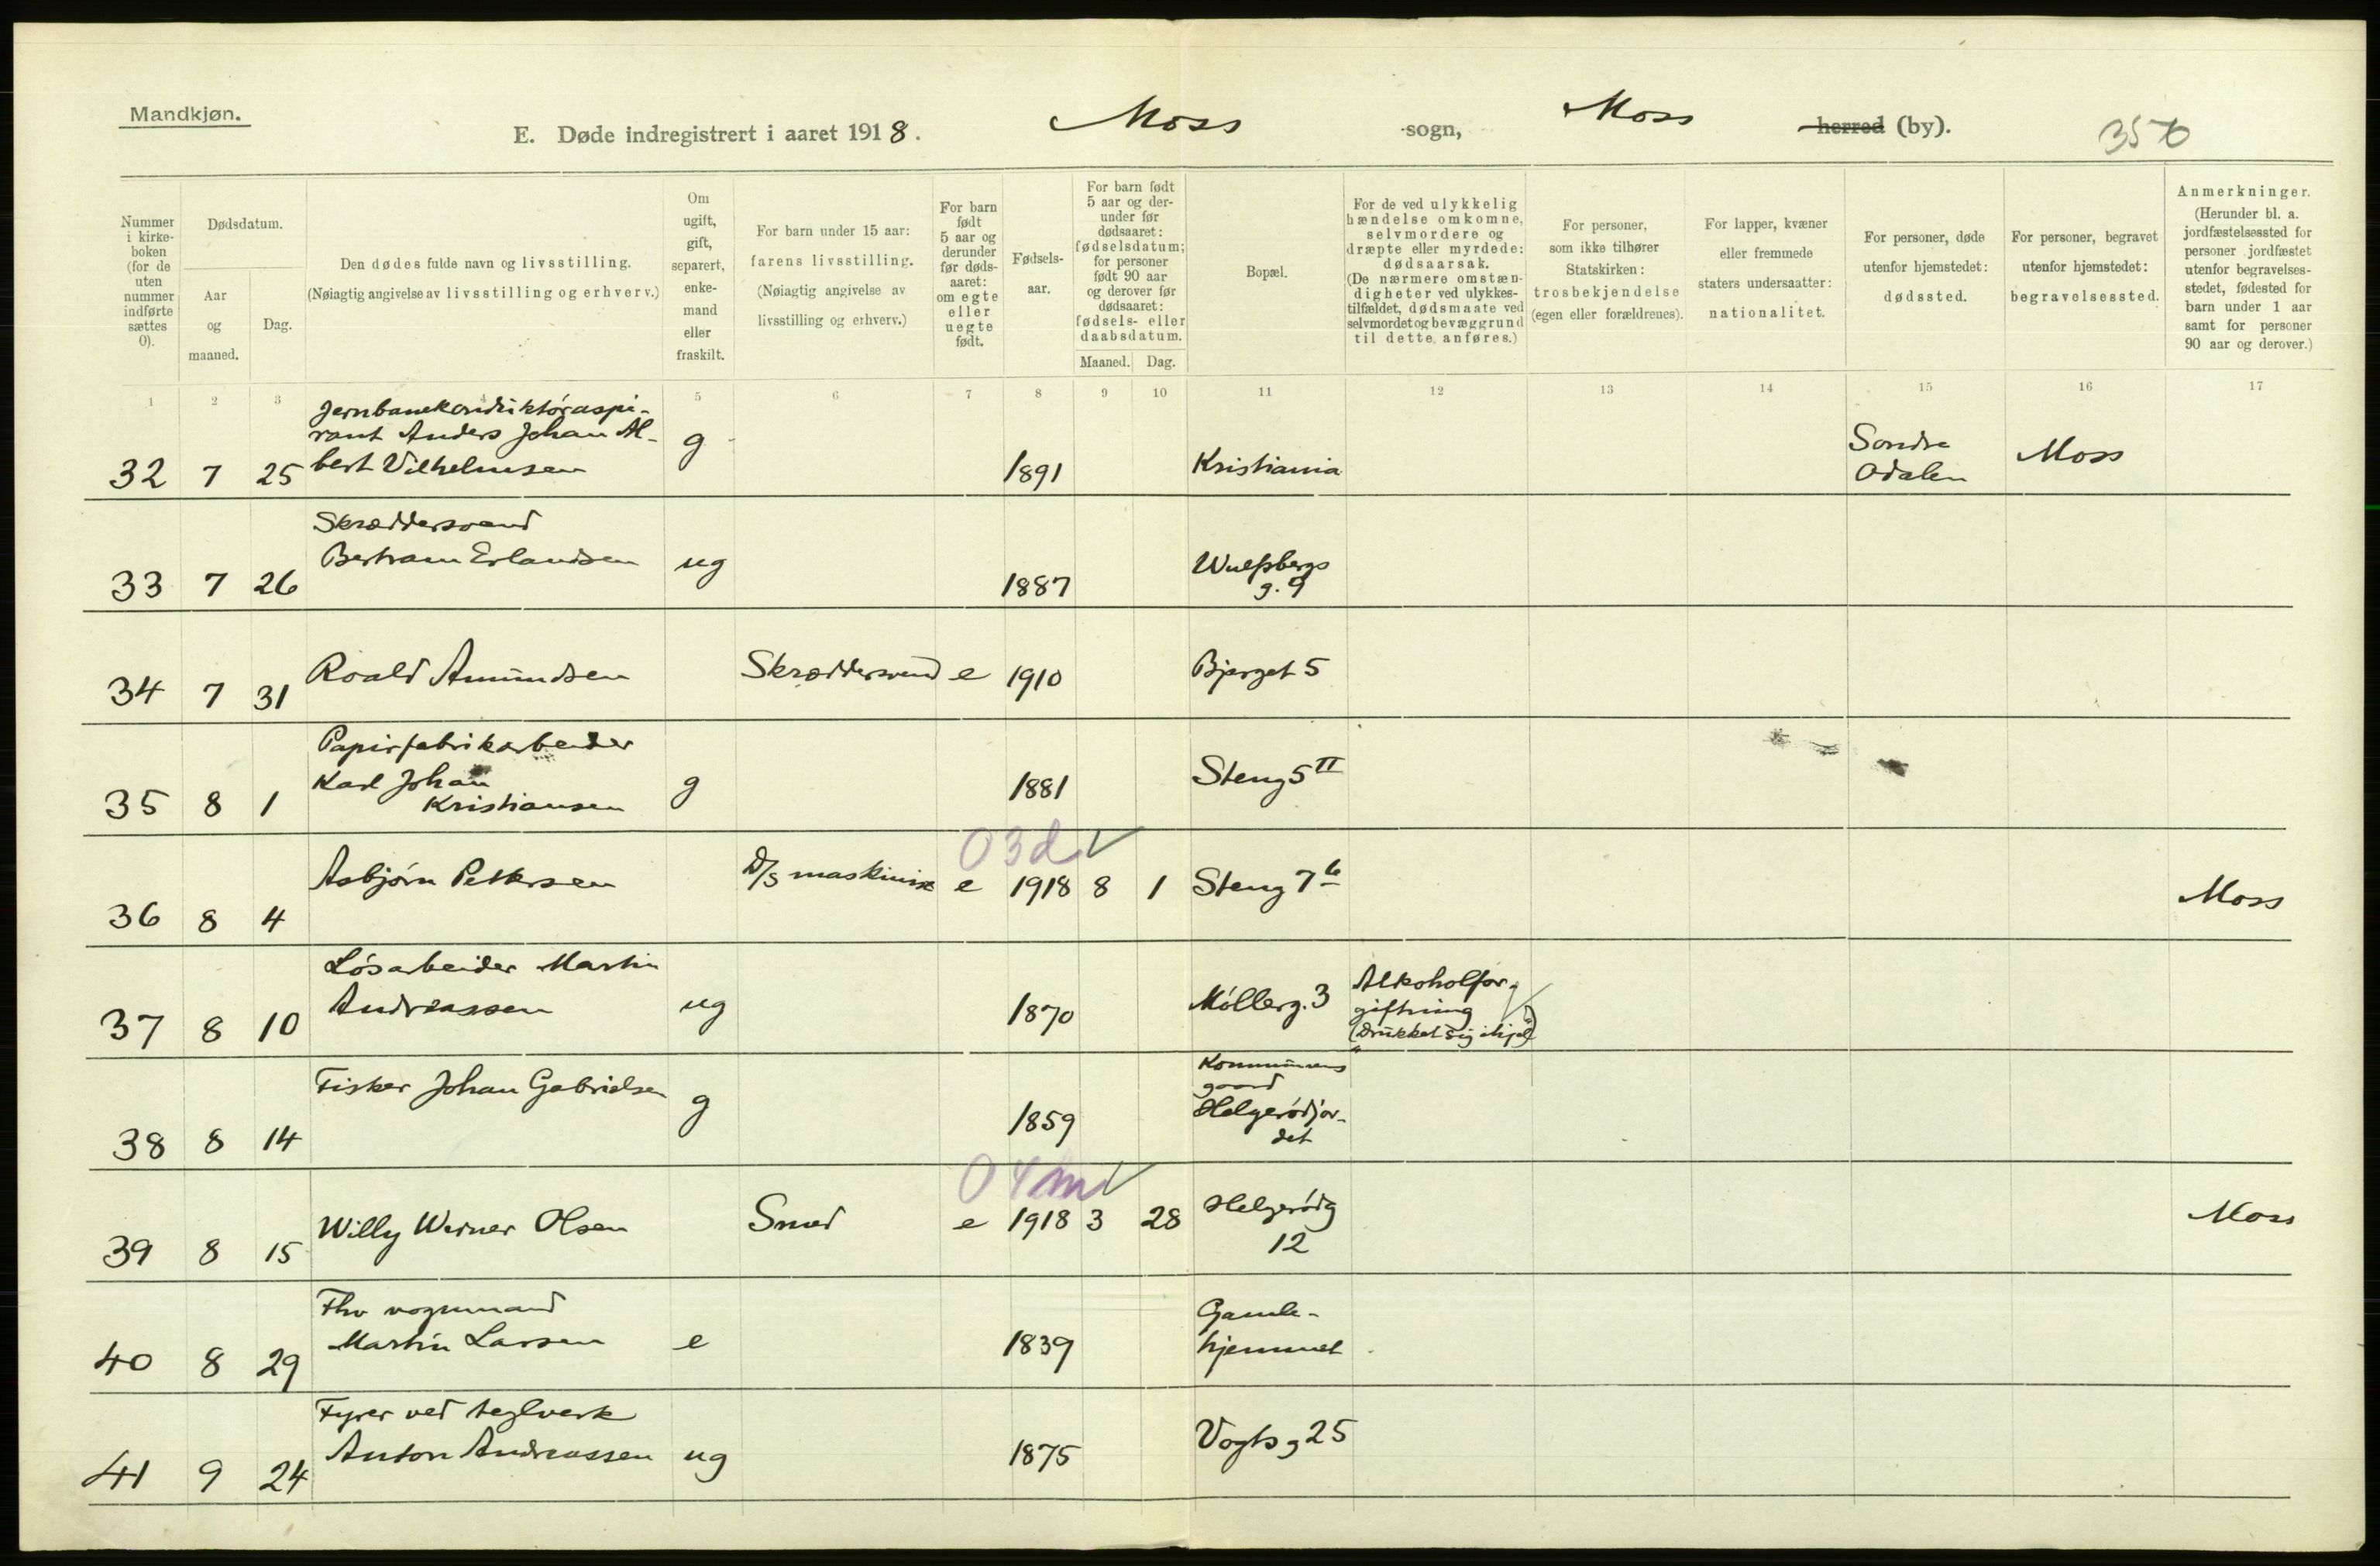 Mandkjøn.
E. Døde indregistrert i aaret 1918. Moss sogn, Moss herred (by). 356
Nummer i kirke-boken (for de uten nummer indførte sættes 0).
Dødsdatum.
Aar og maaned.
Dag.
Den dødes fulde navn og livsstilling.
(Nøiagtig angivelse av livsstilling og erhverv.)
Om ugift, gift, separert, enke-mand eller fraskilt.
For barn under 15 aar: farens livsstilling.
(Nøiagtig angivelse av livsstilling og erhverv.)
For barn født 5 aar og derunder før døds-aaret: om egte eller uegte født.
Fødsels-aar.
For barn født 5 aar og der-under før dødsaaret: fødselsdatum; for personer født 90 aar og derover før dødsaaret: fødsels- eller daabsdatum.
Maaned. Dag.
Bopæl.
For de ved ulykkelig hændelse omkomne, selvmordere og dræpte eller myrdede: dødsaarsak.
(De nærmere omstæn-digheter ved ulykkes-tilfældet, dødsmaate ved selvmordet og bevæggrund til dette anføres.)
For personer, som ikke tilhører Statskirken: trosbekjendelse (egen eller forældrenes).
For lapper, kvæner eller fremmede staters undersaatter: nationalitet.
For personer, døde utenfor hjemstedet: dødssted.
For personer, begravet utenfor hjemstedet: begravelsessted.
Anmerkninger.
(Herunder bl. a. jordfæstelsessted for personer jordfæstet utenfor begravelses-stedet, fødested for barn under 1 aar samt for personer 90 aar og derover.)
1 2 3 4 5 6 7 8 9 10 11 12 13 14 15 16 17
Jernbanekonduktóraspi-
rant Anders Johan Al-
bert Vilhelmsen
32 7 25 g 1891 Kristiania Sondre Odalen Moss
Skræddersvend
Bertram Erlandsen
33 7 26 ug 1887 Wulfsbergs g. 9
34 7 31 Roald Amundsen Skræddersvend e 1910 Bjerget 5
Papirfabrikarbeider
Karl Johan
Kristiansen
35 8 1 g 1881 Steng 5 II
0 3d
36 8 4 Asbjórn Pettersen D/S maskinist e 1918 8 1 Steng 7 b Moss
Lósarbeider Martin
Andreassen
37 8 10 ug 1870 Móllerg. 3 Alkoholfor-
giftning
("Drukket sig ihjel")
38 8 14 Fisker Johan Gabrielsen g 1859 Kommunens
gaard
Helgeródjor-
det
0 4m
39 8 15 Willy Werner Olsen Smed e 1918 3 28 Helgeródg
12 Moss
Fhv vognmand
Martin Larsen
40 8 29 e 1839 Gamle-
hjemmet
Fyrer ved teglverk
Anton Andreassen
41 9 24 ug 1875 Vogts g 25